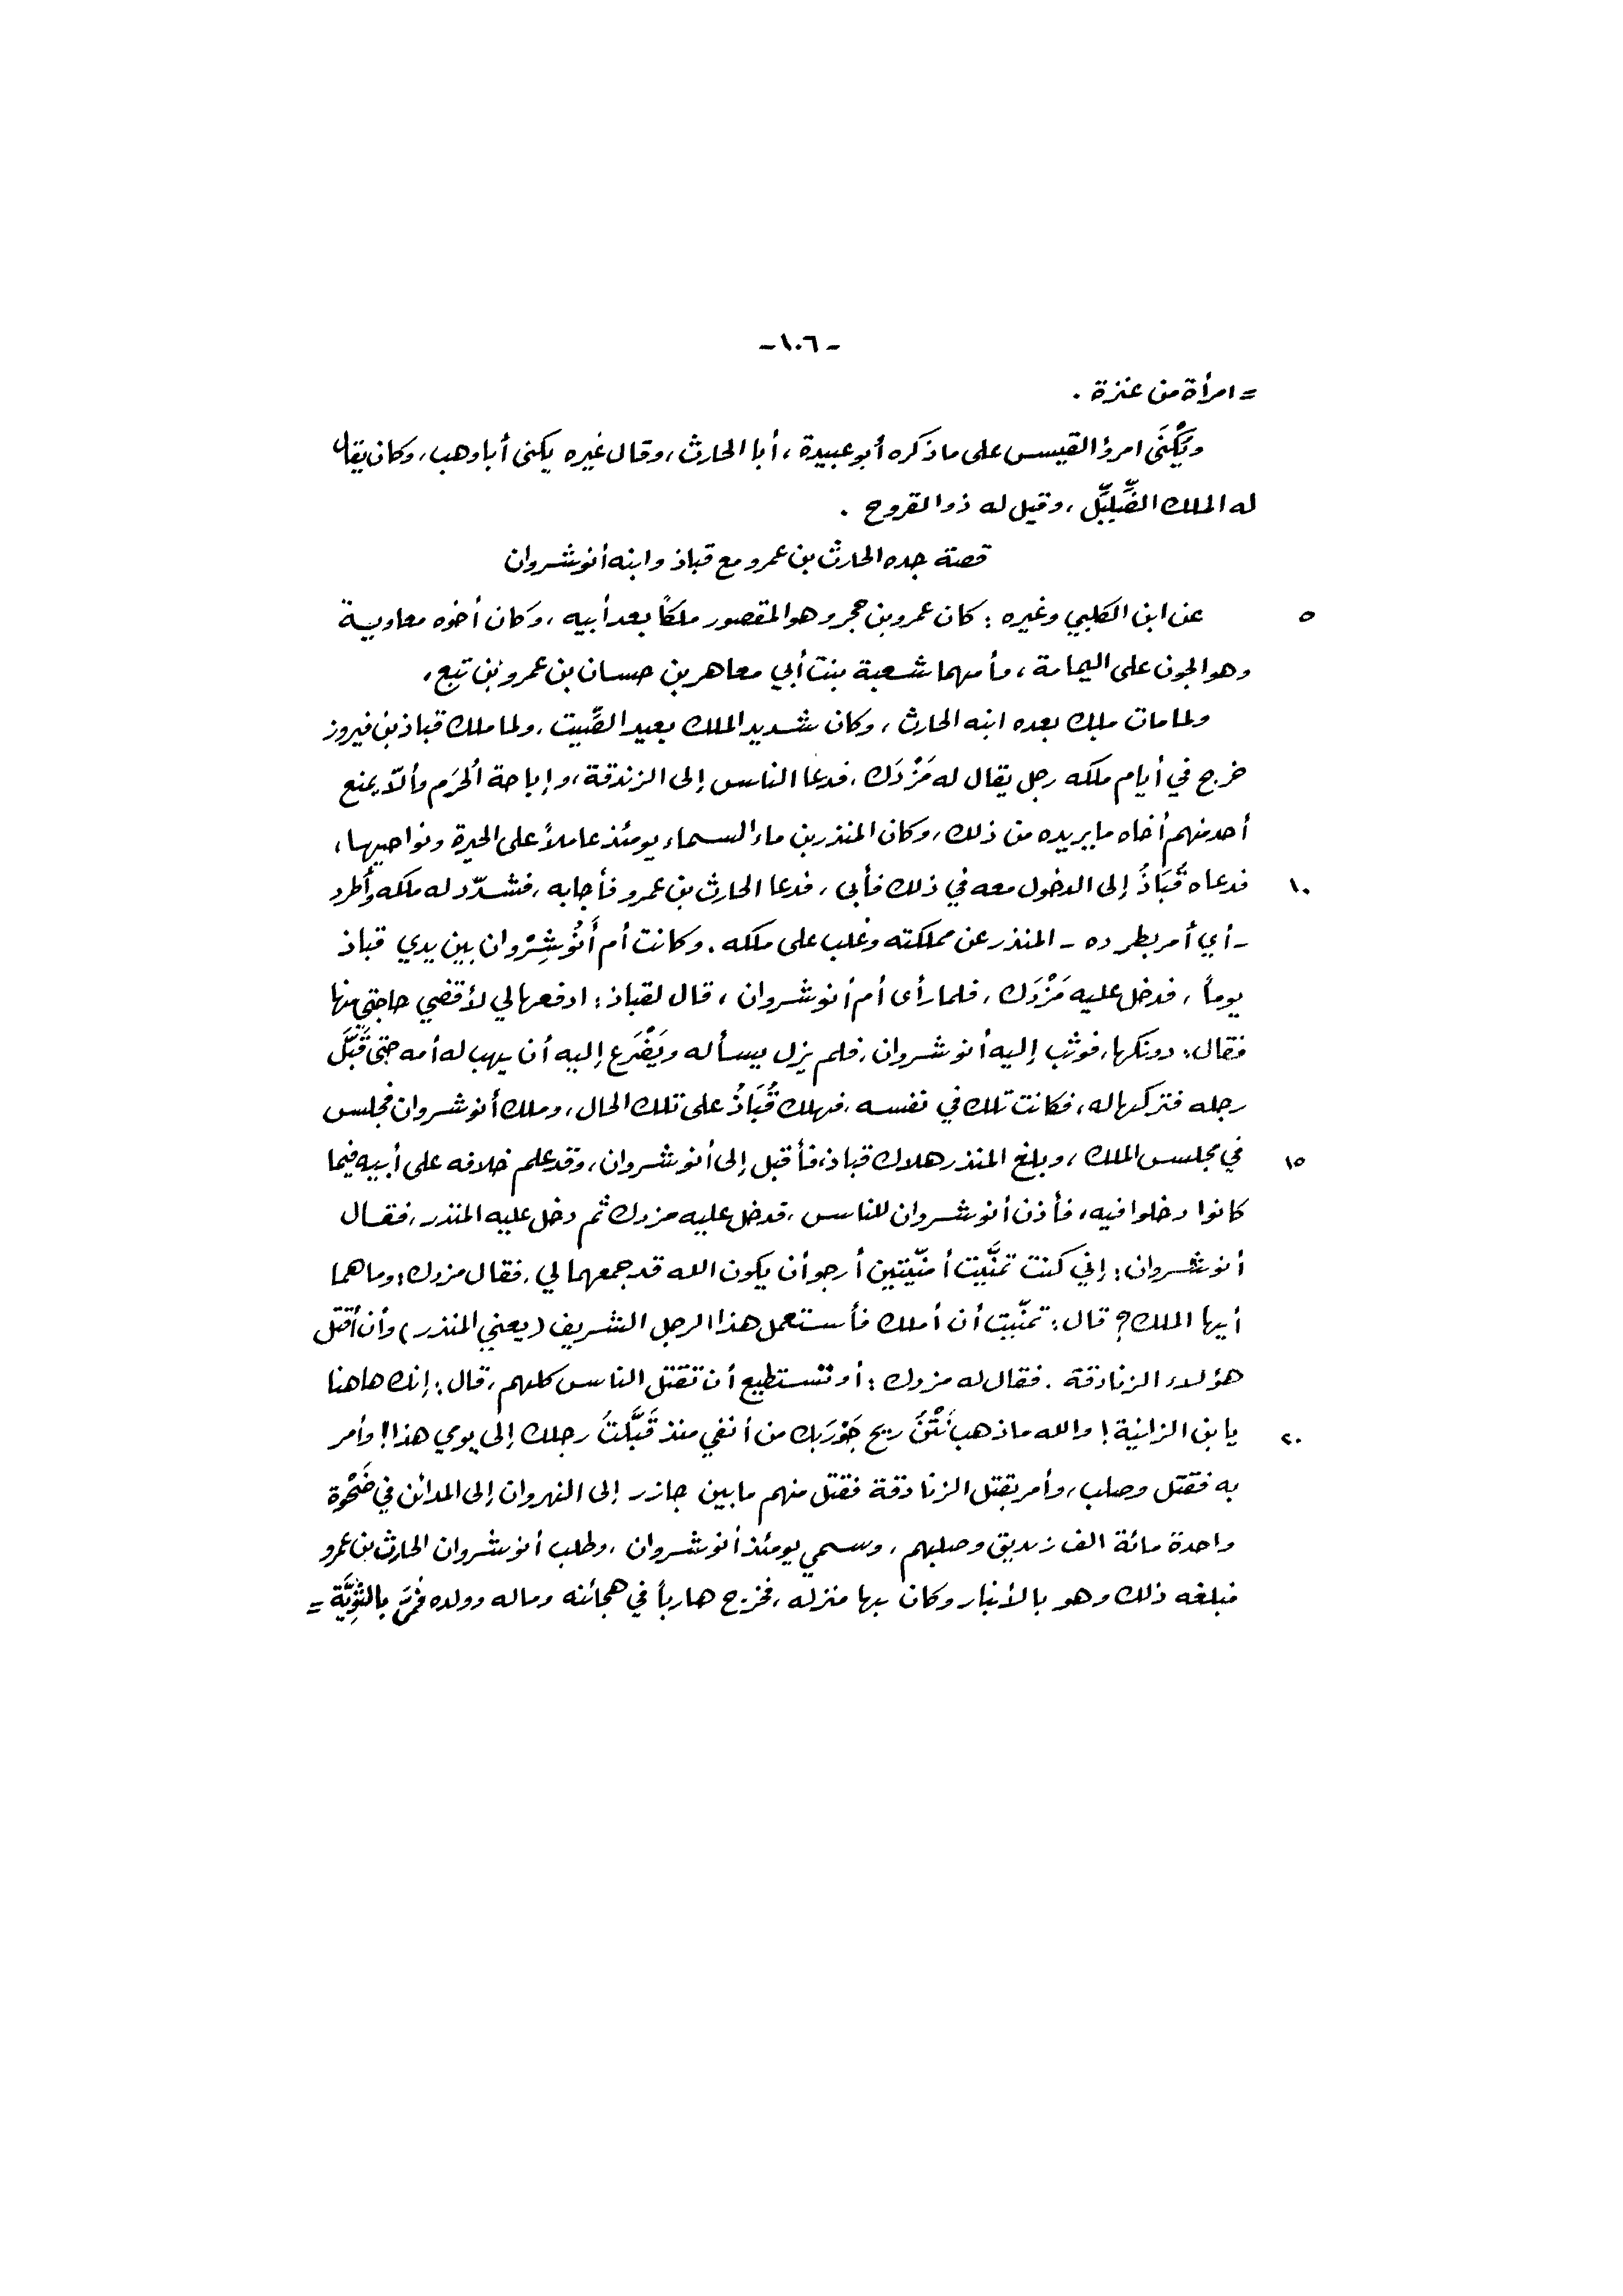 - ١٠٦ -
= امرأة من عنزة .
ويُكْنَى امرؤ القيس على ما ذكره أبو عبيدة ، أبا الحارث ، وقال غيره يكنى أبا وهب ، وكان يقال
له الملك الضِّلِّيل ، وقيل له ذو القروح .
قصة جده الحارث بن عمرو مع قباذ وابنه أنوشروان
٥ عن ابن الكلبي وغيره : كان عمرو بن حجر وهو المقصور ملكاً بعد أبيه ، وكان أخوه معاوية
وهو الجون على اليمامة ، وأمهما شعبة بنت أبي معاهر بن حسان بن عمرو بن تبع ،
ولما مات ملك بعده ابنه الحارث ، وكان شديد الملك بعيد الصِّيت ، ولما ملك قباذ بن فيروز
خرج في أيام ملكه رجل يقال له مَزْدَك ، فدعا الناس إلى الزندقة ، وإباحة الحُرَم وألّا يمنع
أحد منهم أخاه ما يريده من ذلك ، وكان المنذر بن ماء السماء يومئذ عاملاً على الحيرة ونواحيها ،
١٠ فدعاه قُبَاذُ إلى الدخول معه في ذلك فأبى ، فدعا الحارث بن عمرو فأجابه ، فشدّد له ملكه وأُطرد
- أي أمر بطرده - المنذر عن مملكته وغلب على ملكه . وكانت أم أَنُوشِرْوان بين يدي قباذ
يوماً ، فدخل عليه مَزْدَك ، فلما رأى أم أنوشروان ، قال لقباذ : ادفعها لي لأقضي حاجتي منها
فقال : دونكها ، فوثب إليه أنوشروان ، فلم يزل يسأله ويَضْرَع إليه أن يهب له أمه حتى قَبَّلَ
رجله فتركها له ، فكانت تلك في نفسه ، فهلك قُبَاذُ على تلك الحال ، وملك أنوشروان فجلس
١٥ في مجلس الملك ، وبلغ المنذر هلاك قباذ ، فأقبل إلى أنوشروان ، وقد علم خلافه على أبيه فيما
كانوا دخلوا فيه ، فأذن أنوشروان للناس ، فدخل عليه مزدك ثم دخل عليه المنذر ، فقال
أنوشروان : إني كنت تمنَّيت أمنّيتين أرجو أن يكون الله قد جمعهما لي ، فقال مزدك : وما هما
أيها الملك ؟ قال : تمنّيت أن أملك فأستعمل هذا الرجل الشريف ( يعني المنذر ) وأن أقتل
هؤلاء الزنادقة . فقال له مزدك : أو تستطيع أن تقتل الناس كلهم ، قال : إنك هاهنا
٢٠ يا بن الزانية ! والله ما ذهب نَتْنُ ريح جَوْرَبك من أنفي منذ قَبَّلتُ رجلك إلى يومي هذا ! وأمر
به فقتل وصلب ، وأمر بقتل الزنادقة فقتل منهم ما بين جازر إلى النهروان إلى المدائن في ضَحْوة
واحدة مائة الف زنديق وصلبهم ، وسمي يومئذ أنوشروان ، وطلب أنوشروان الحارث بن عمرو
فبلغه ذلك وهو بالأنبار وكان بها منزله ، فخرج هارباً في هجائنه وماله وولده فمَرَّ بالثَّوِيَّة =